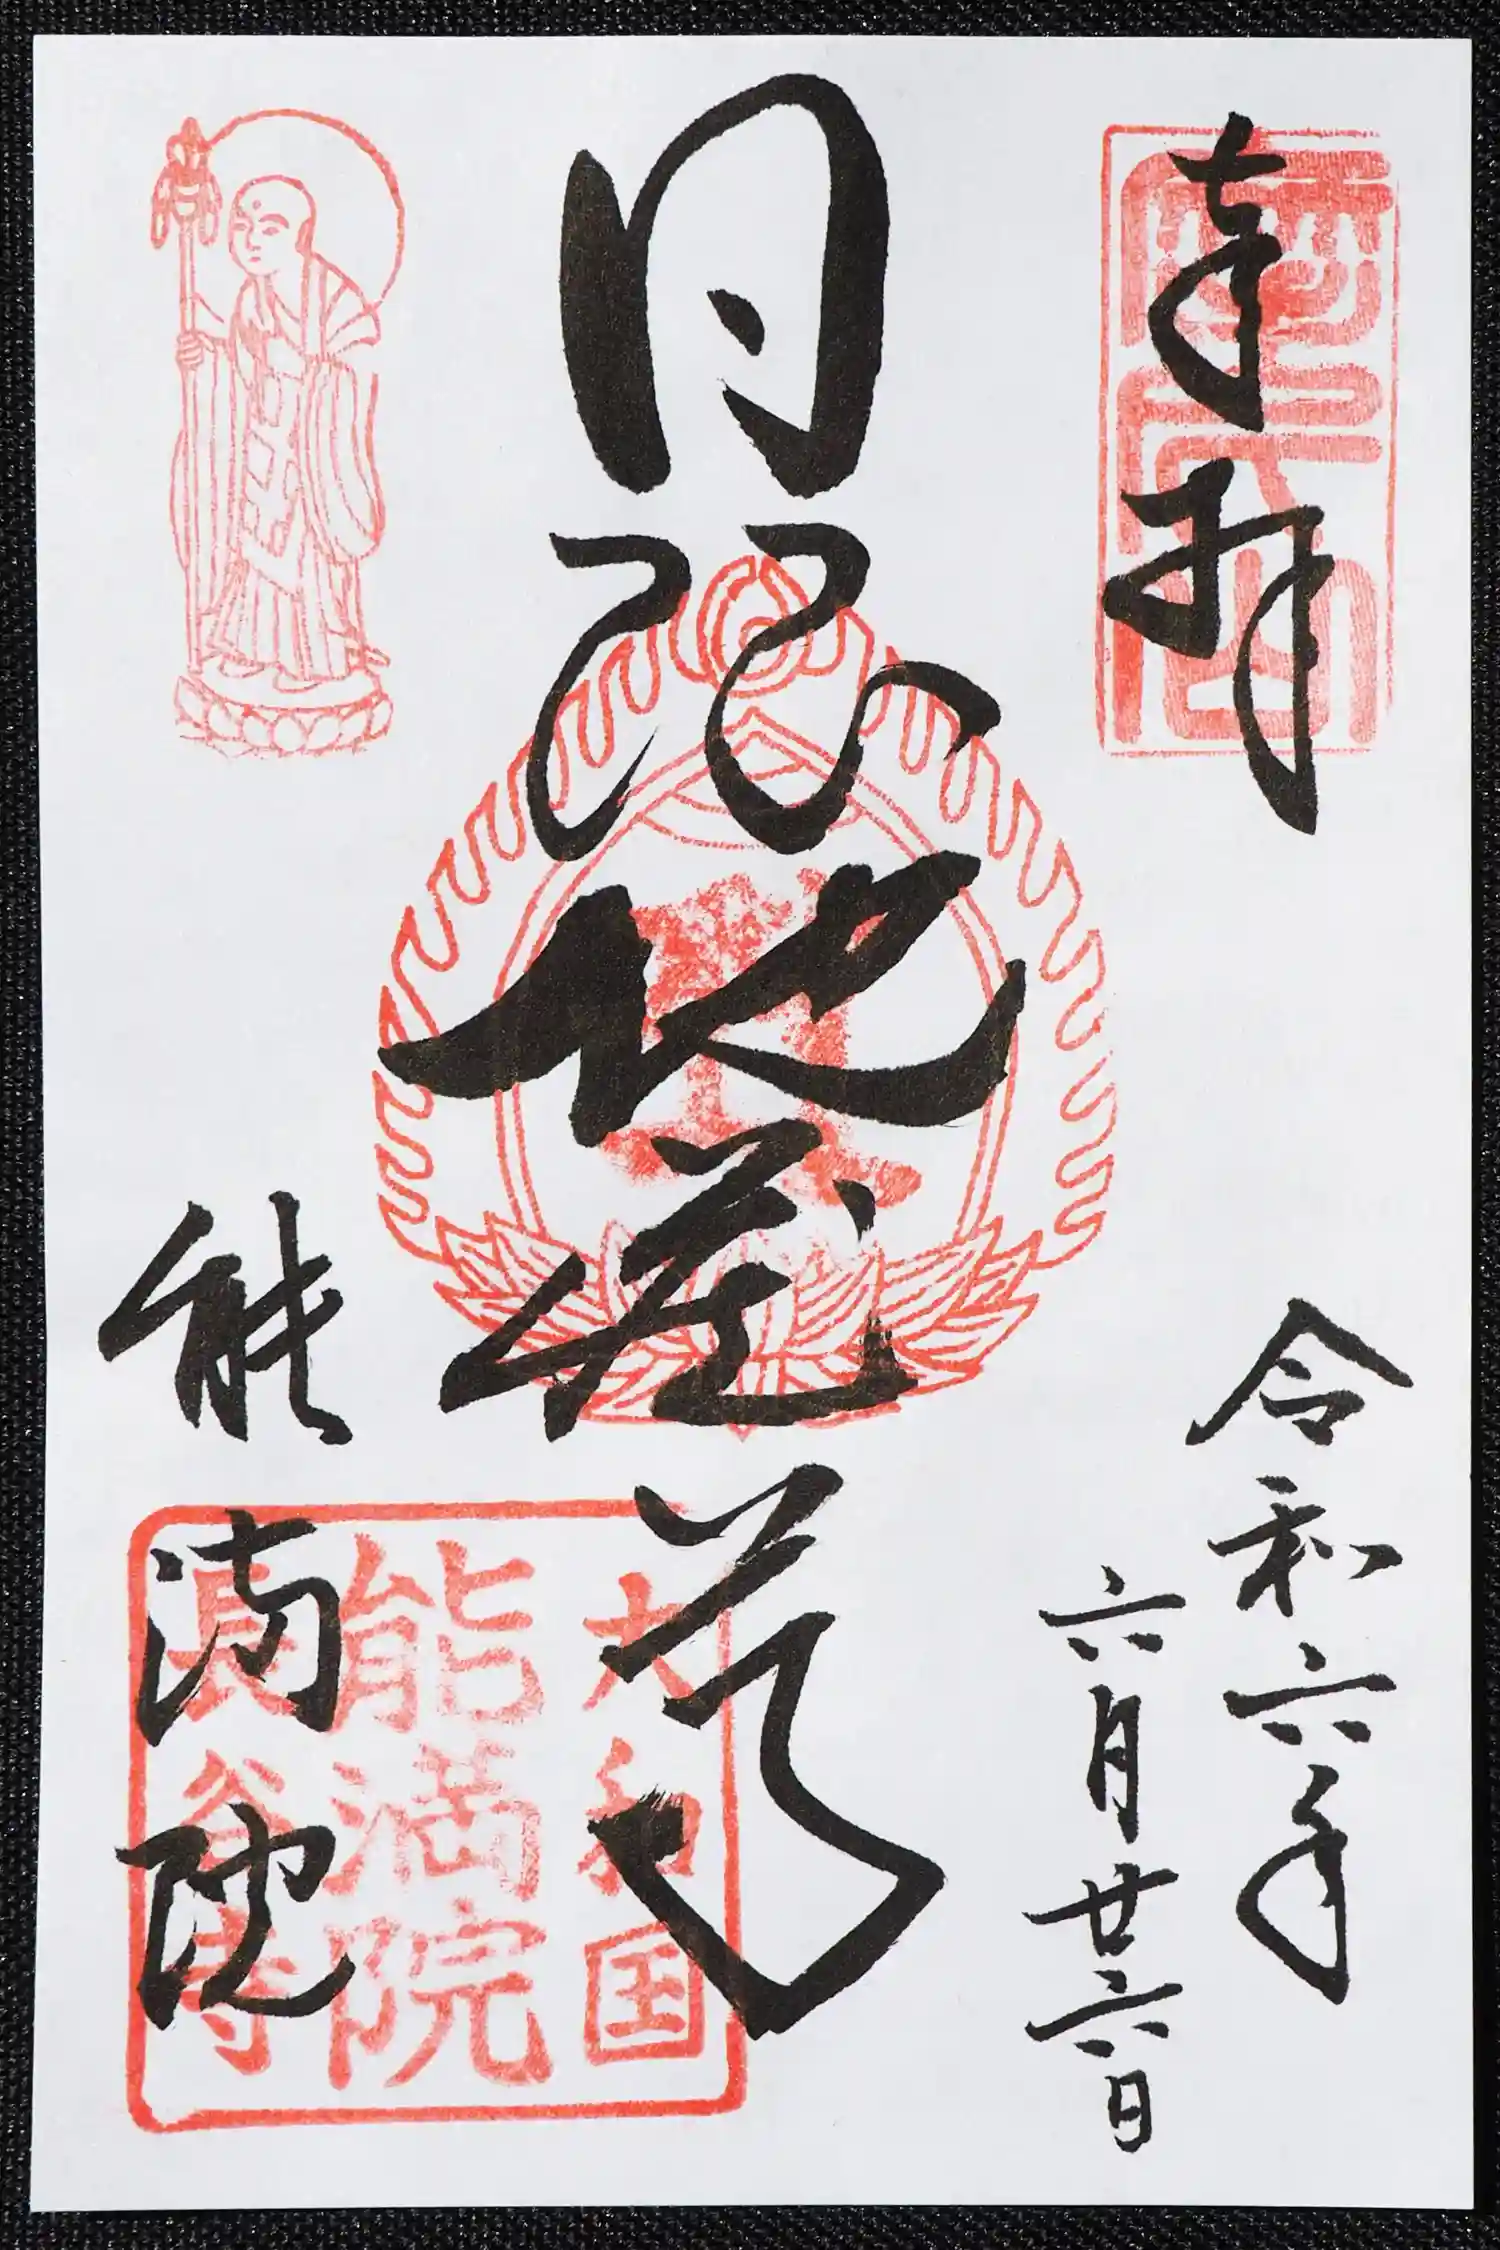 奉拝
令和六年
六月廿六日
日限地蔵尊
能満院
大和国
能満院
長谷寺